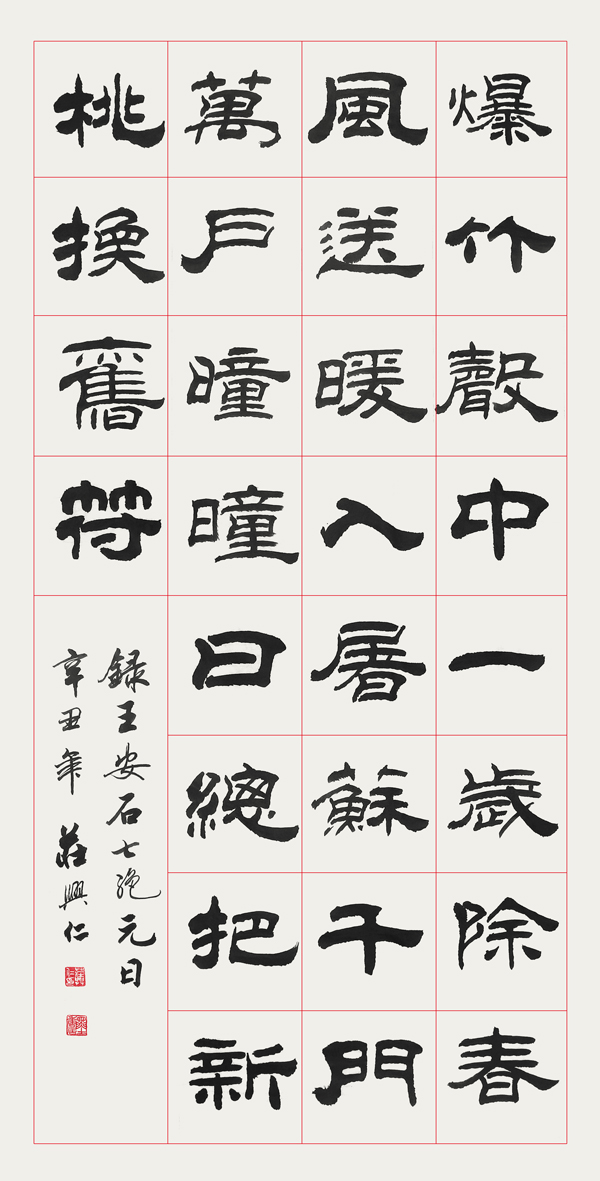 爆竹聲中一歲除春
風送暖入屠蘇千門
萬戶曈曈日總把新
桃換舊符
録王安石七絶元日
辛丑年莊興仁